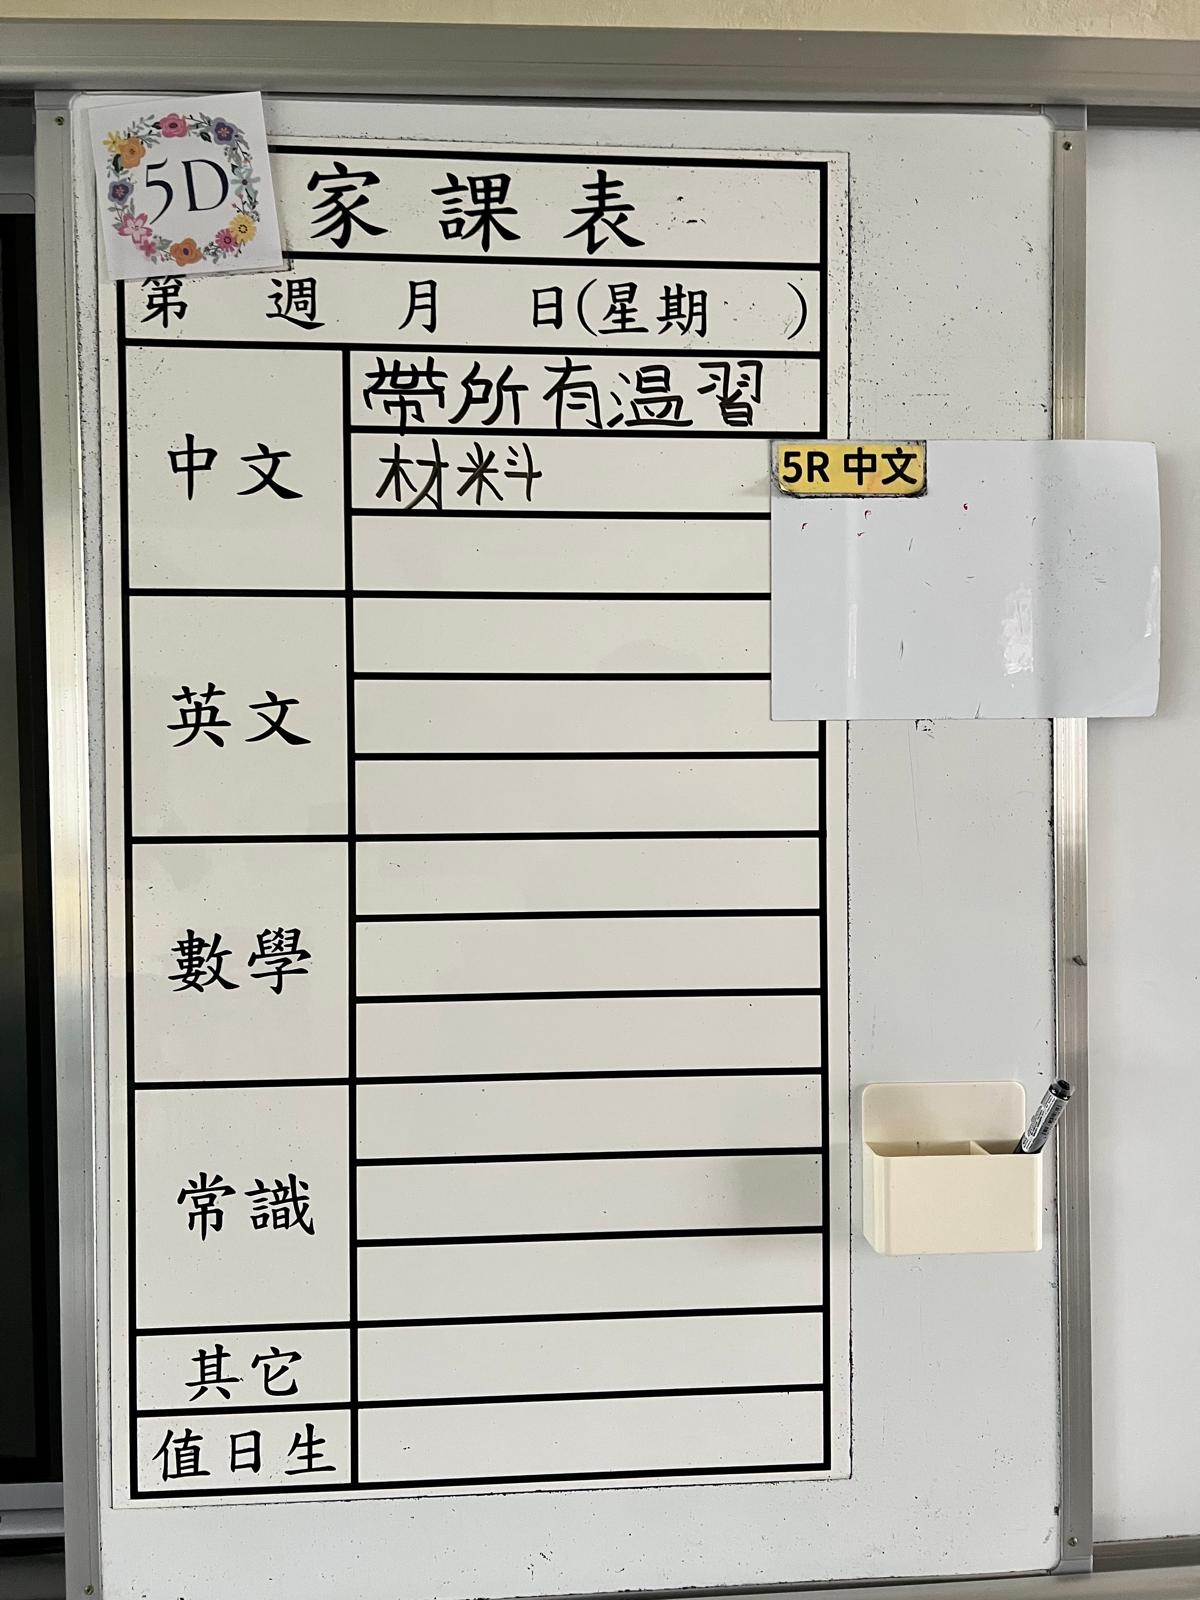 5D
家課表
第 週 月 日(星期 )
中文
帶所有温習
材料
5R 中文
英文
數學
常識
其它
值日生